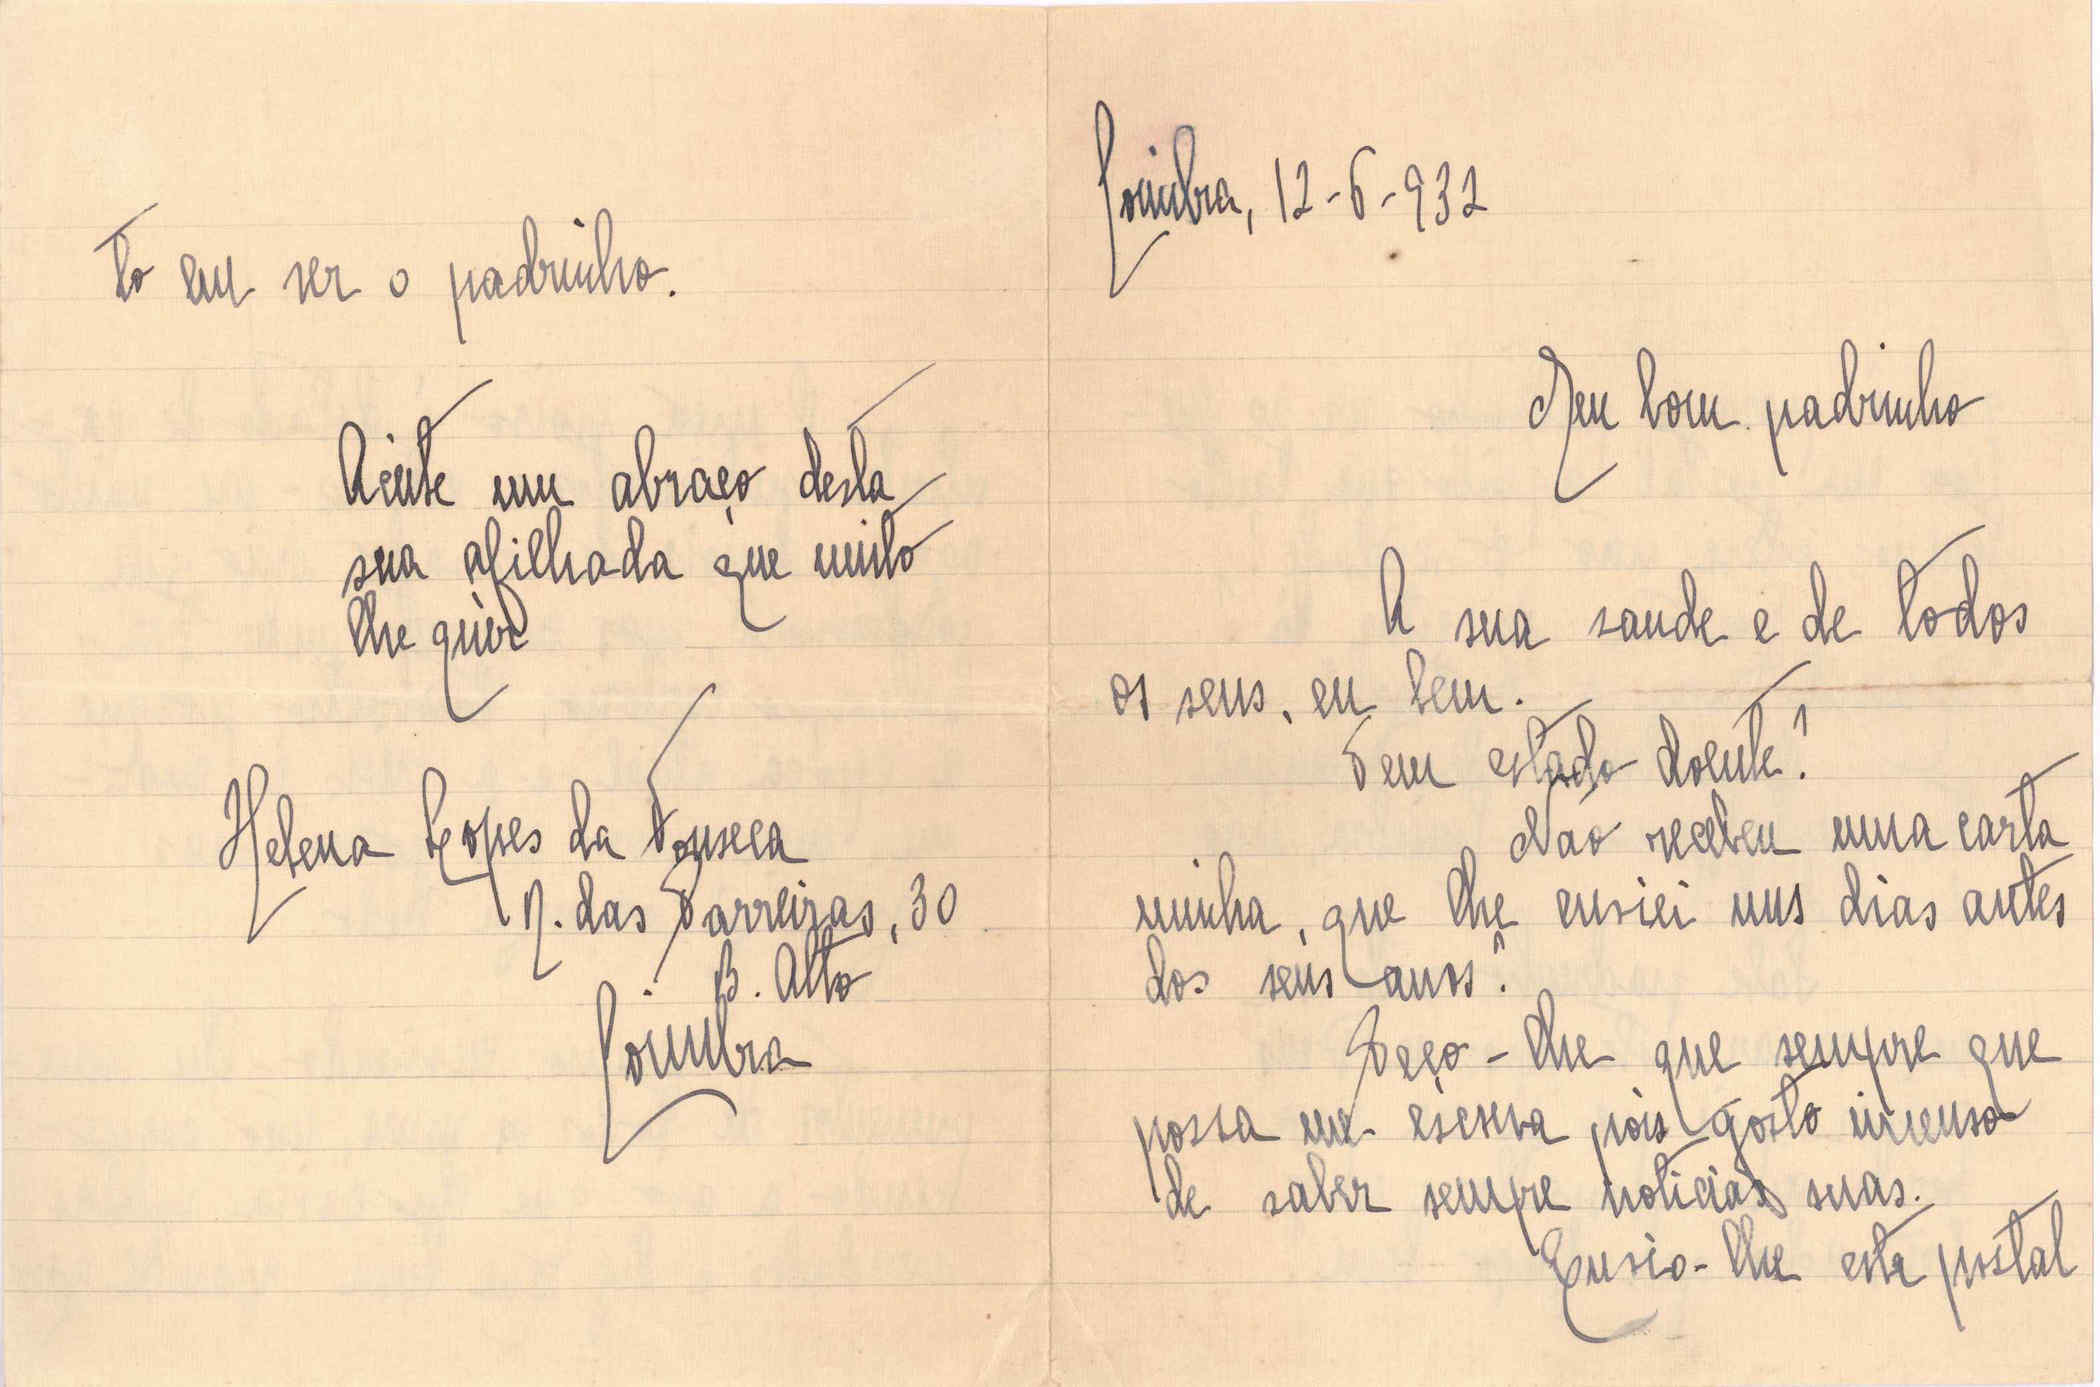 Coimbra, 12-6-932
Meu bom padrinho
A sua saude e de todos
os seus, eu bem.
Tem estado doente?
Não recebeu uma carta
minha, que lhe enviei uns dias antes
dos seus anos?
Peço-lhe que sempre que
possa me escreva pois gosto imenso
de saber sempre noticias suas.
Envio-lhe este postal
to em ser o padrinho.
Aceite um abraço desta
sua afilhada que muito
lhe quer
Helena Lopes da Fonseca
R. das Parreiras, 30
B. Alto
Coimbra